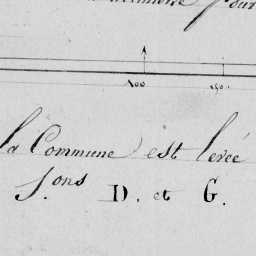 pour
100
150
la Commune est levée
S.ons D. et G.